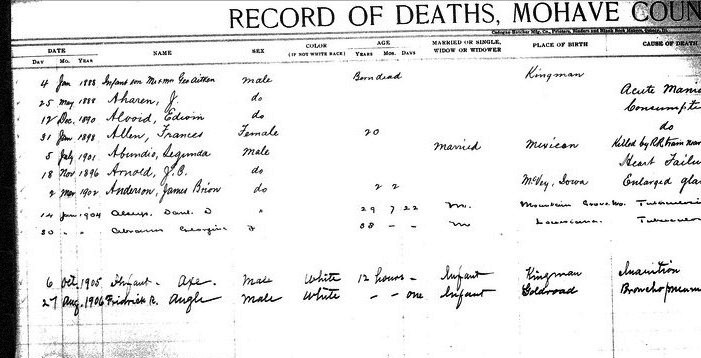 RECORD OF DEATHS, MOHAVE COUN
DATE NAME SEX COLOR (IF NOT WHITE RACE) AGE MARRIED OR SINGLE, WIDOW OR WIDOWER PLACE OF BIRTH CAUSE OF DEATH
DAY MO. YEAR YEARS MOS. DAYS
4 Jan 1888 Infant son Mr & Mrs Geo Aitken male Born dead Kingman
25 May 1888 Aharen, J. do Acute Mani
12 Dec. 1890 Alvoid, Edwin do Consumpti
31 Jan 1898 Allen, Frances Female 20 do
5 July 1901 Abundio, Segunda Male Married Mexican Killed by R.R. Train near
18 Nov 1896 Arnold, J.C. do Heart Failu
2 Mar 1902 Anderson, James Brion do 2 2 McVey, Iowa Enlarged gla
14 Jan 1904 D " 29 7 22 M. Mountain Grove Mo. Tuberculosi
30 " " Abrams Georgina F 38 - - M Louisiana Tubercul
6 Oct. 1905 Infant - Axe. Male White 12 hours - Infant Kingman Inanition
27 Aug. 1906 Fridrick R. Angle Male White - - one Infant Goldroad Bronchopneum